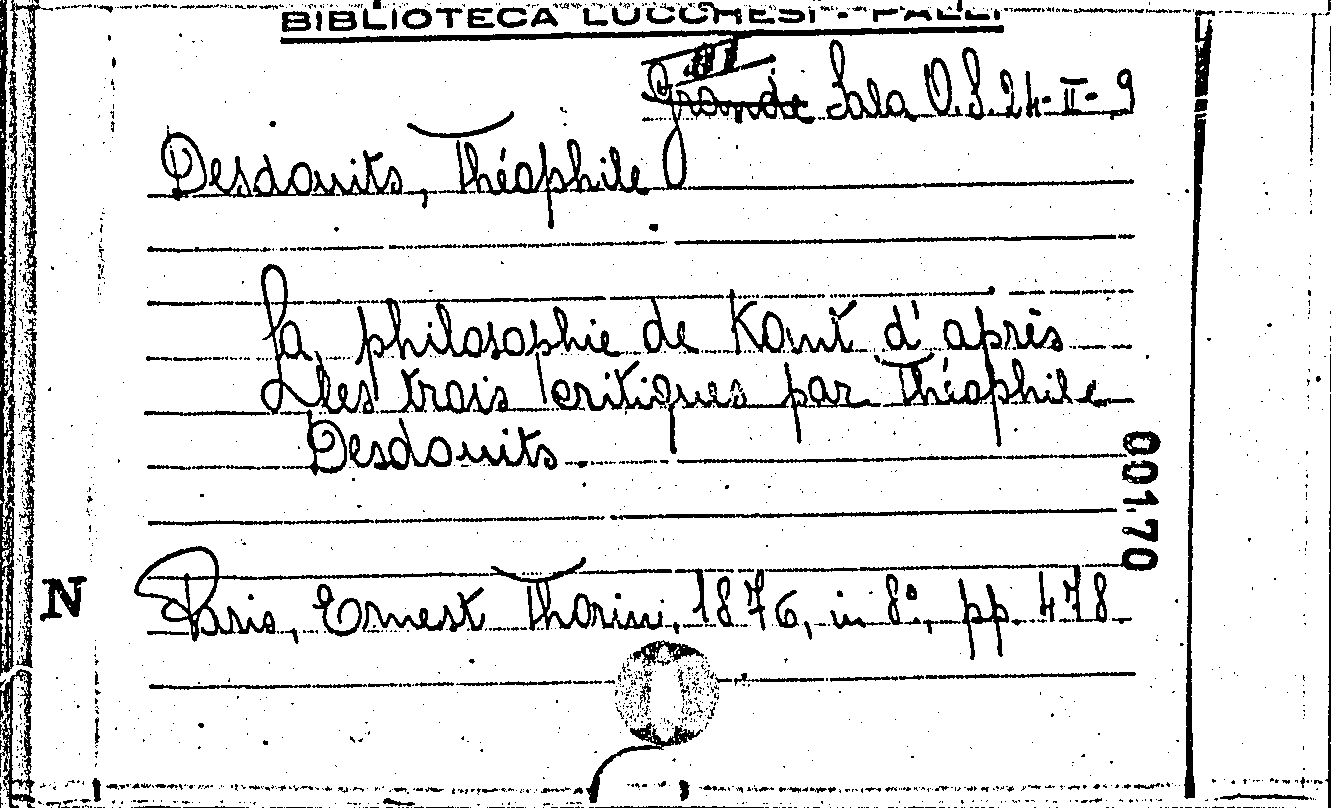 BIBLIOTECA LUCCHESI - PALLI
III
Grande Sala O.S. 24-II-9
Desdouits, Théophile
La philosophie de Kant d'après
les trois critiques par Théophile
Desdouits.
00170
N
Paris, Ernest Thorin, 1876, in 8°, pp. 478.